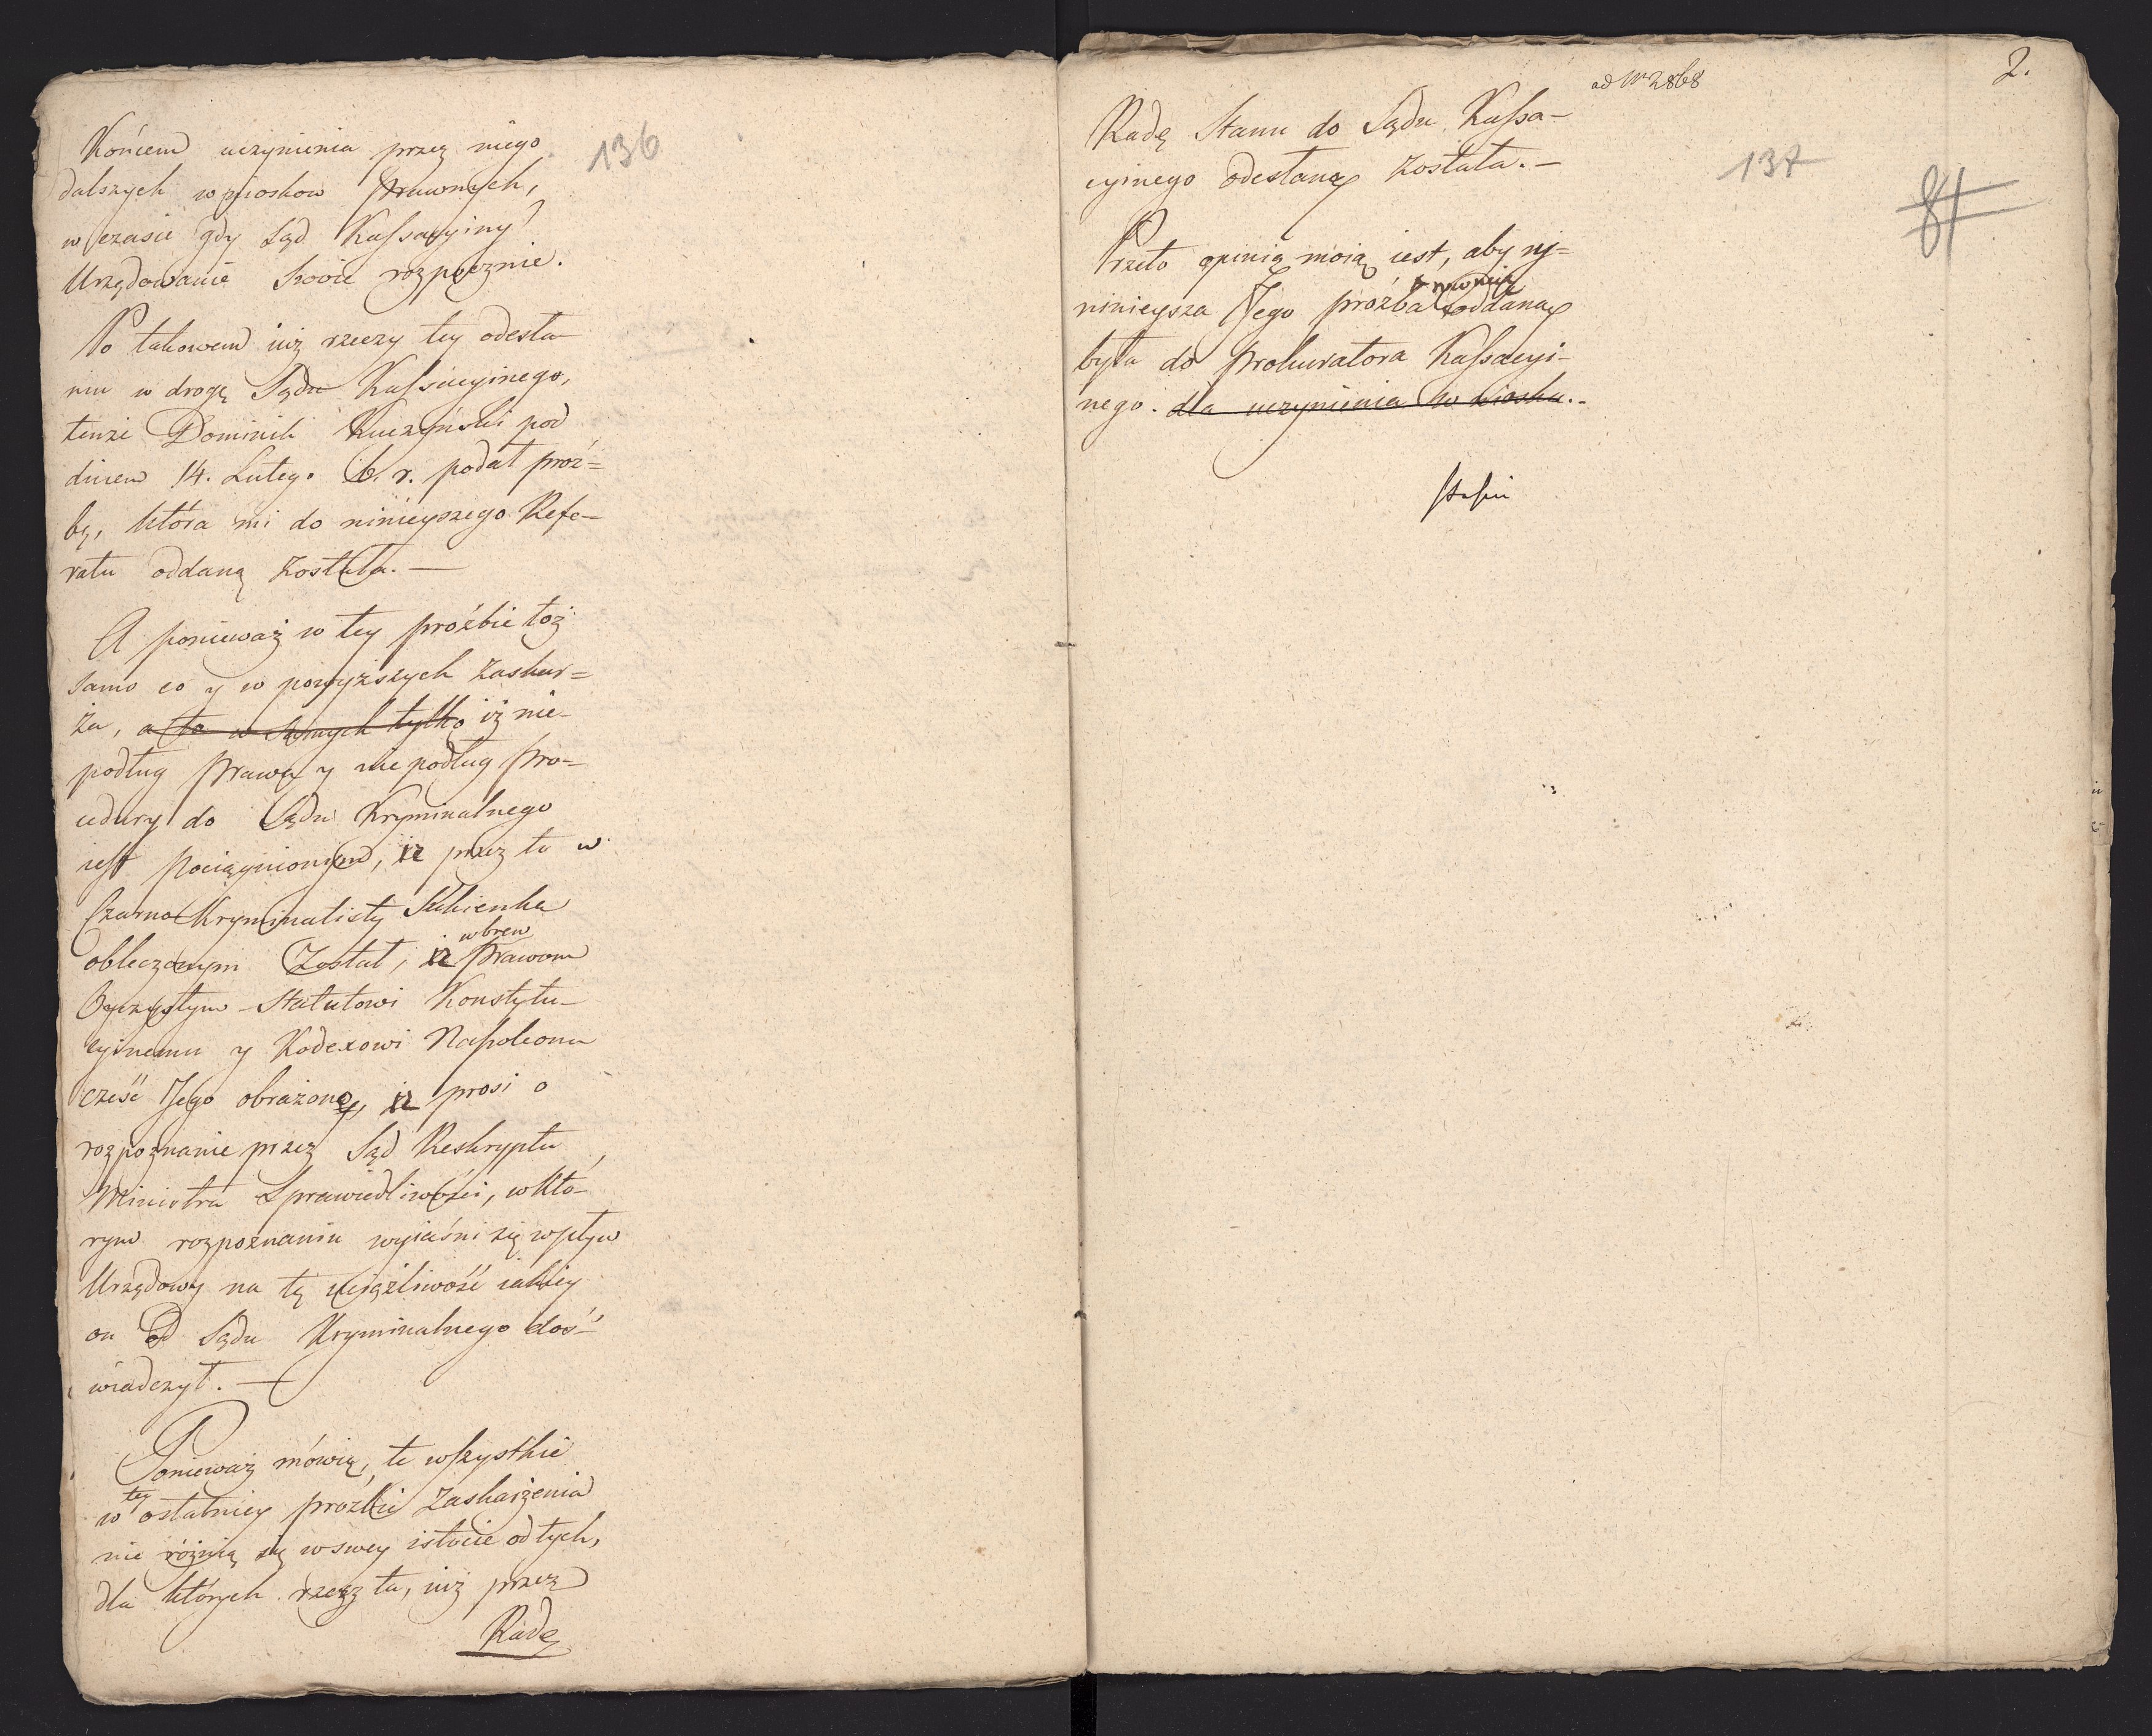 136
Końcem uczynienia przez niego
dalszych wniosków prawnych,
w czasie gdy Sąd Kassacyiny
Urzędowanie swoie rozpocznie.
Po takowem iuż rzeczy tey odesła
niu w drogę Sądu Kassacyinego,
tenże Dominik Kuczyński pod
dniem 14. Lutego b. r. podał proź=
bę, która mi do ninieyszego Refe-
ratu oddaną została. —
A ponieważ w tey proźbie toż
samo co y w powyższych zaskar=
ża, a to w samych tylko iż nie-
podług prawa y nie podług pro-
cedury do Sądu Kryminalnego
iest pociągnionym, iż przez to w
Czarno Kryminalisty Sukienka
obleczonym został, iż wbrew prawom
Oyczystym - Statutowi Konstytu-
cyinemu y Kodexowi Napoleona
cześć Jego obrażoną, iż prosi o
rozpoznanie przez Sąd Reskryptu
Ministra Sprawiedliwości, w któ-
rym rozpoznaniu wyiaśni się wpływ
Urzędowy na tę uciążliwość iakiey
on od Sądu Kryminalnego doś-
wiadczył. —
Ponieważ mówię, te wszystkie
w tey ostatniey proźbie zaskarżenia
nie różnią się w swey istocie od tych,
dla których rzecz ta, iuż przez
Radę
ad Nr 2868
2.
137
81
Radę Stanu do Sądu Kassa-
cyinego odesłaną została. —
Przeto opinią moią iest, aby ny-
ninieysza Jego proźba równie oddaną
była do Prokuratora Kassacyi-
nego. dla uczynienia wniosku. -